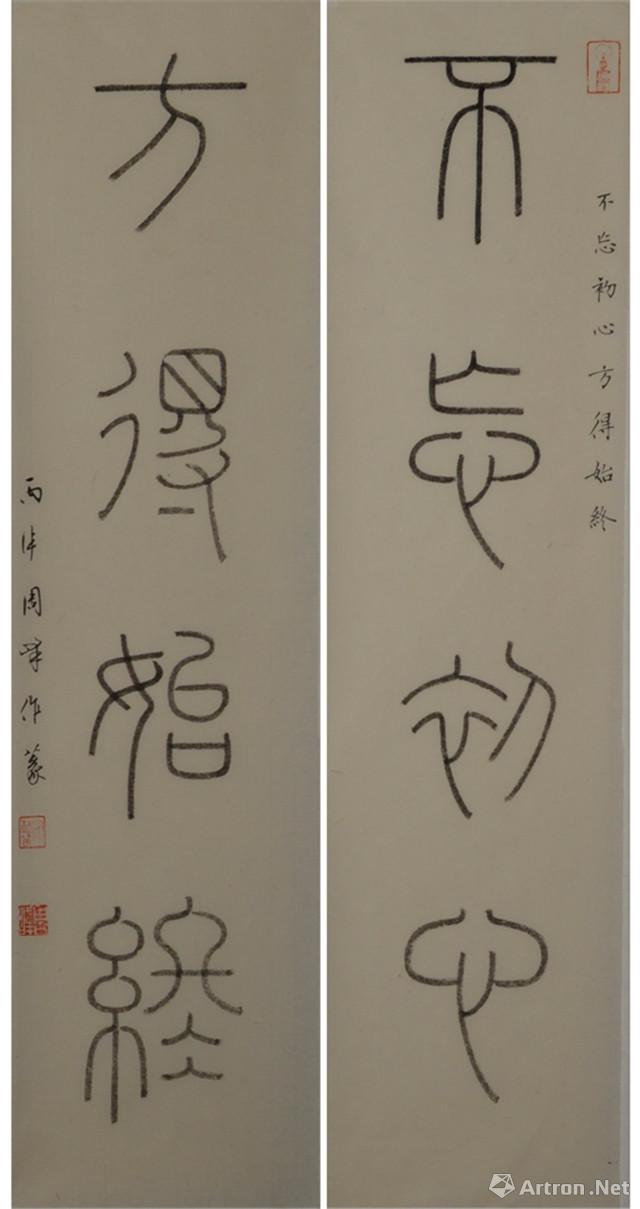 不忘初心方得始終
不忘初心
方得始終
丙申周作篆
Artron.Net